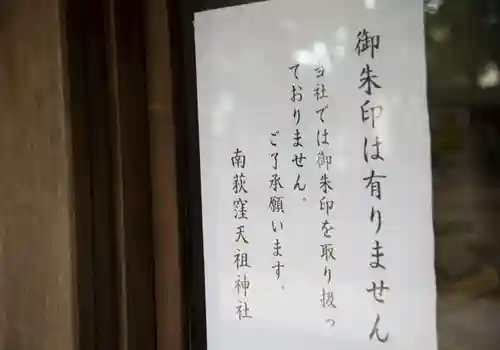 御朱印は有りません
当社では御朱印を取り扱っ
ておりません。
ご了承願います。
南荻窪天祖神社